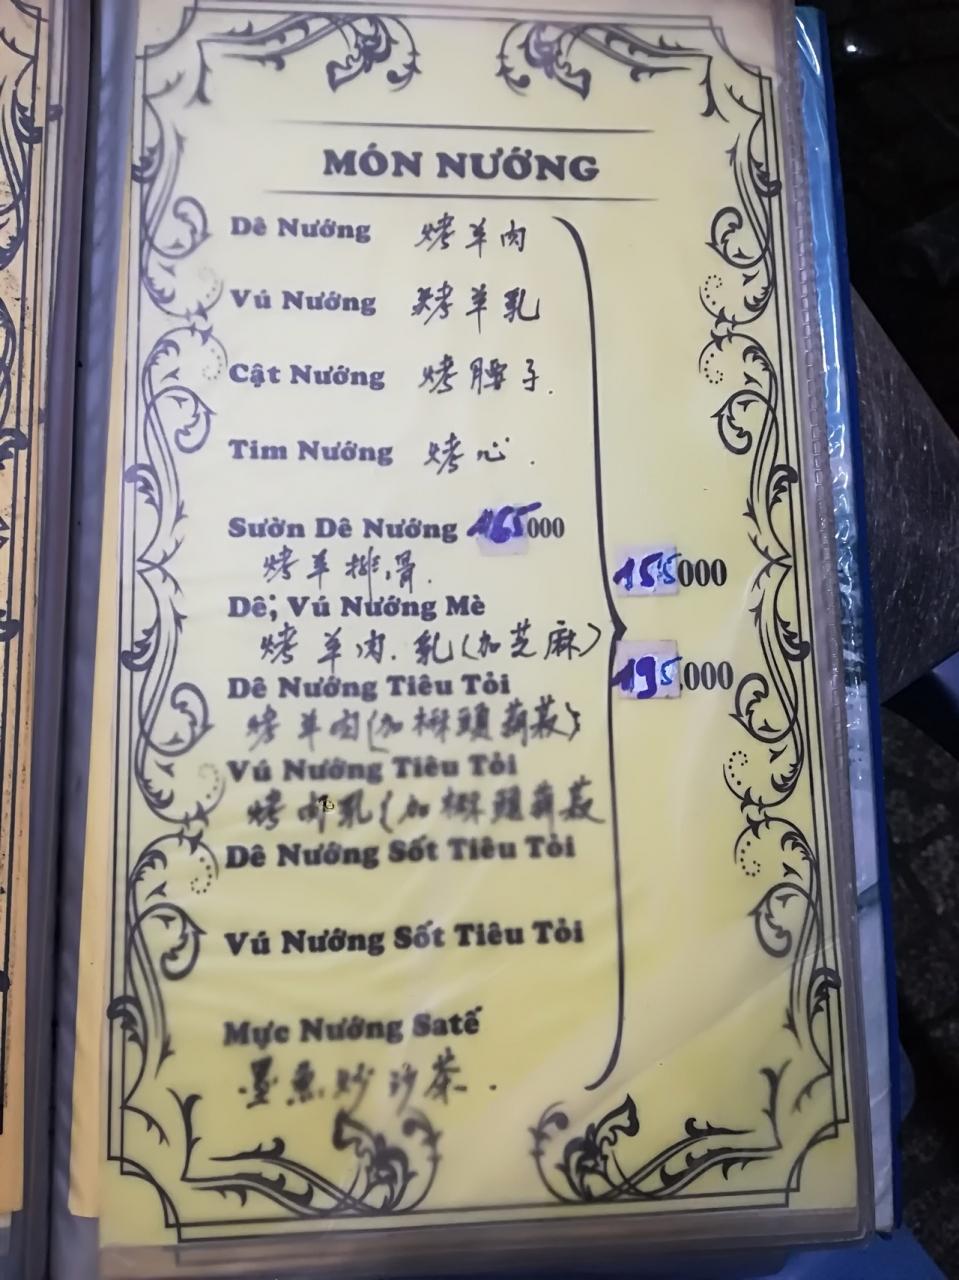 MÓN NƯỚNG
Dê Nướng 烤羊肉
Vú Nướng 烤羊乳
Cật Nướng 烤腰子.
Tim Nướng 烤心.
Sườn Dê Nướng 165000
烤羊排骨.
155000
Dê, Vú Nướng Mè
烤羊肉.乳(加芝麻)
195.000
Dê Nướng Tiêu Tỏi
烤羊肉(加椒頭蒜蓉)
Vú Nướng Tiêu Tỏi
烤 乳(加椒頭蒜蓉
Dê Nướng Sốt Tiêu Tỏi
Vú Nướng Sốt Tiêu Tỏi
Mực Nướng Satế
墨魚炒沙茶.